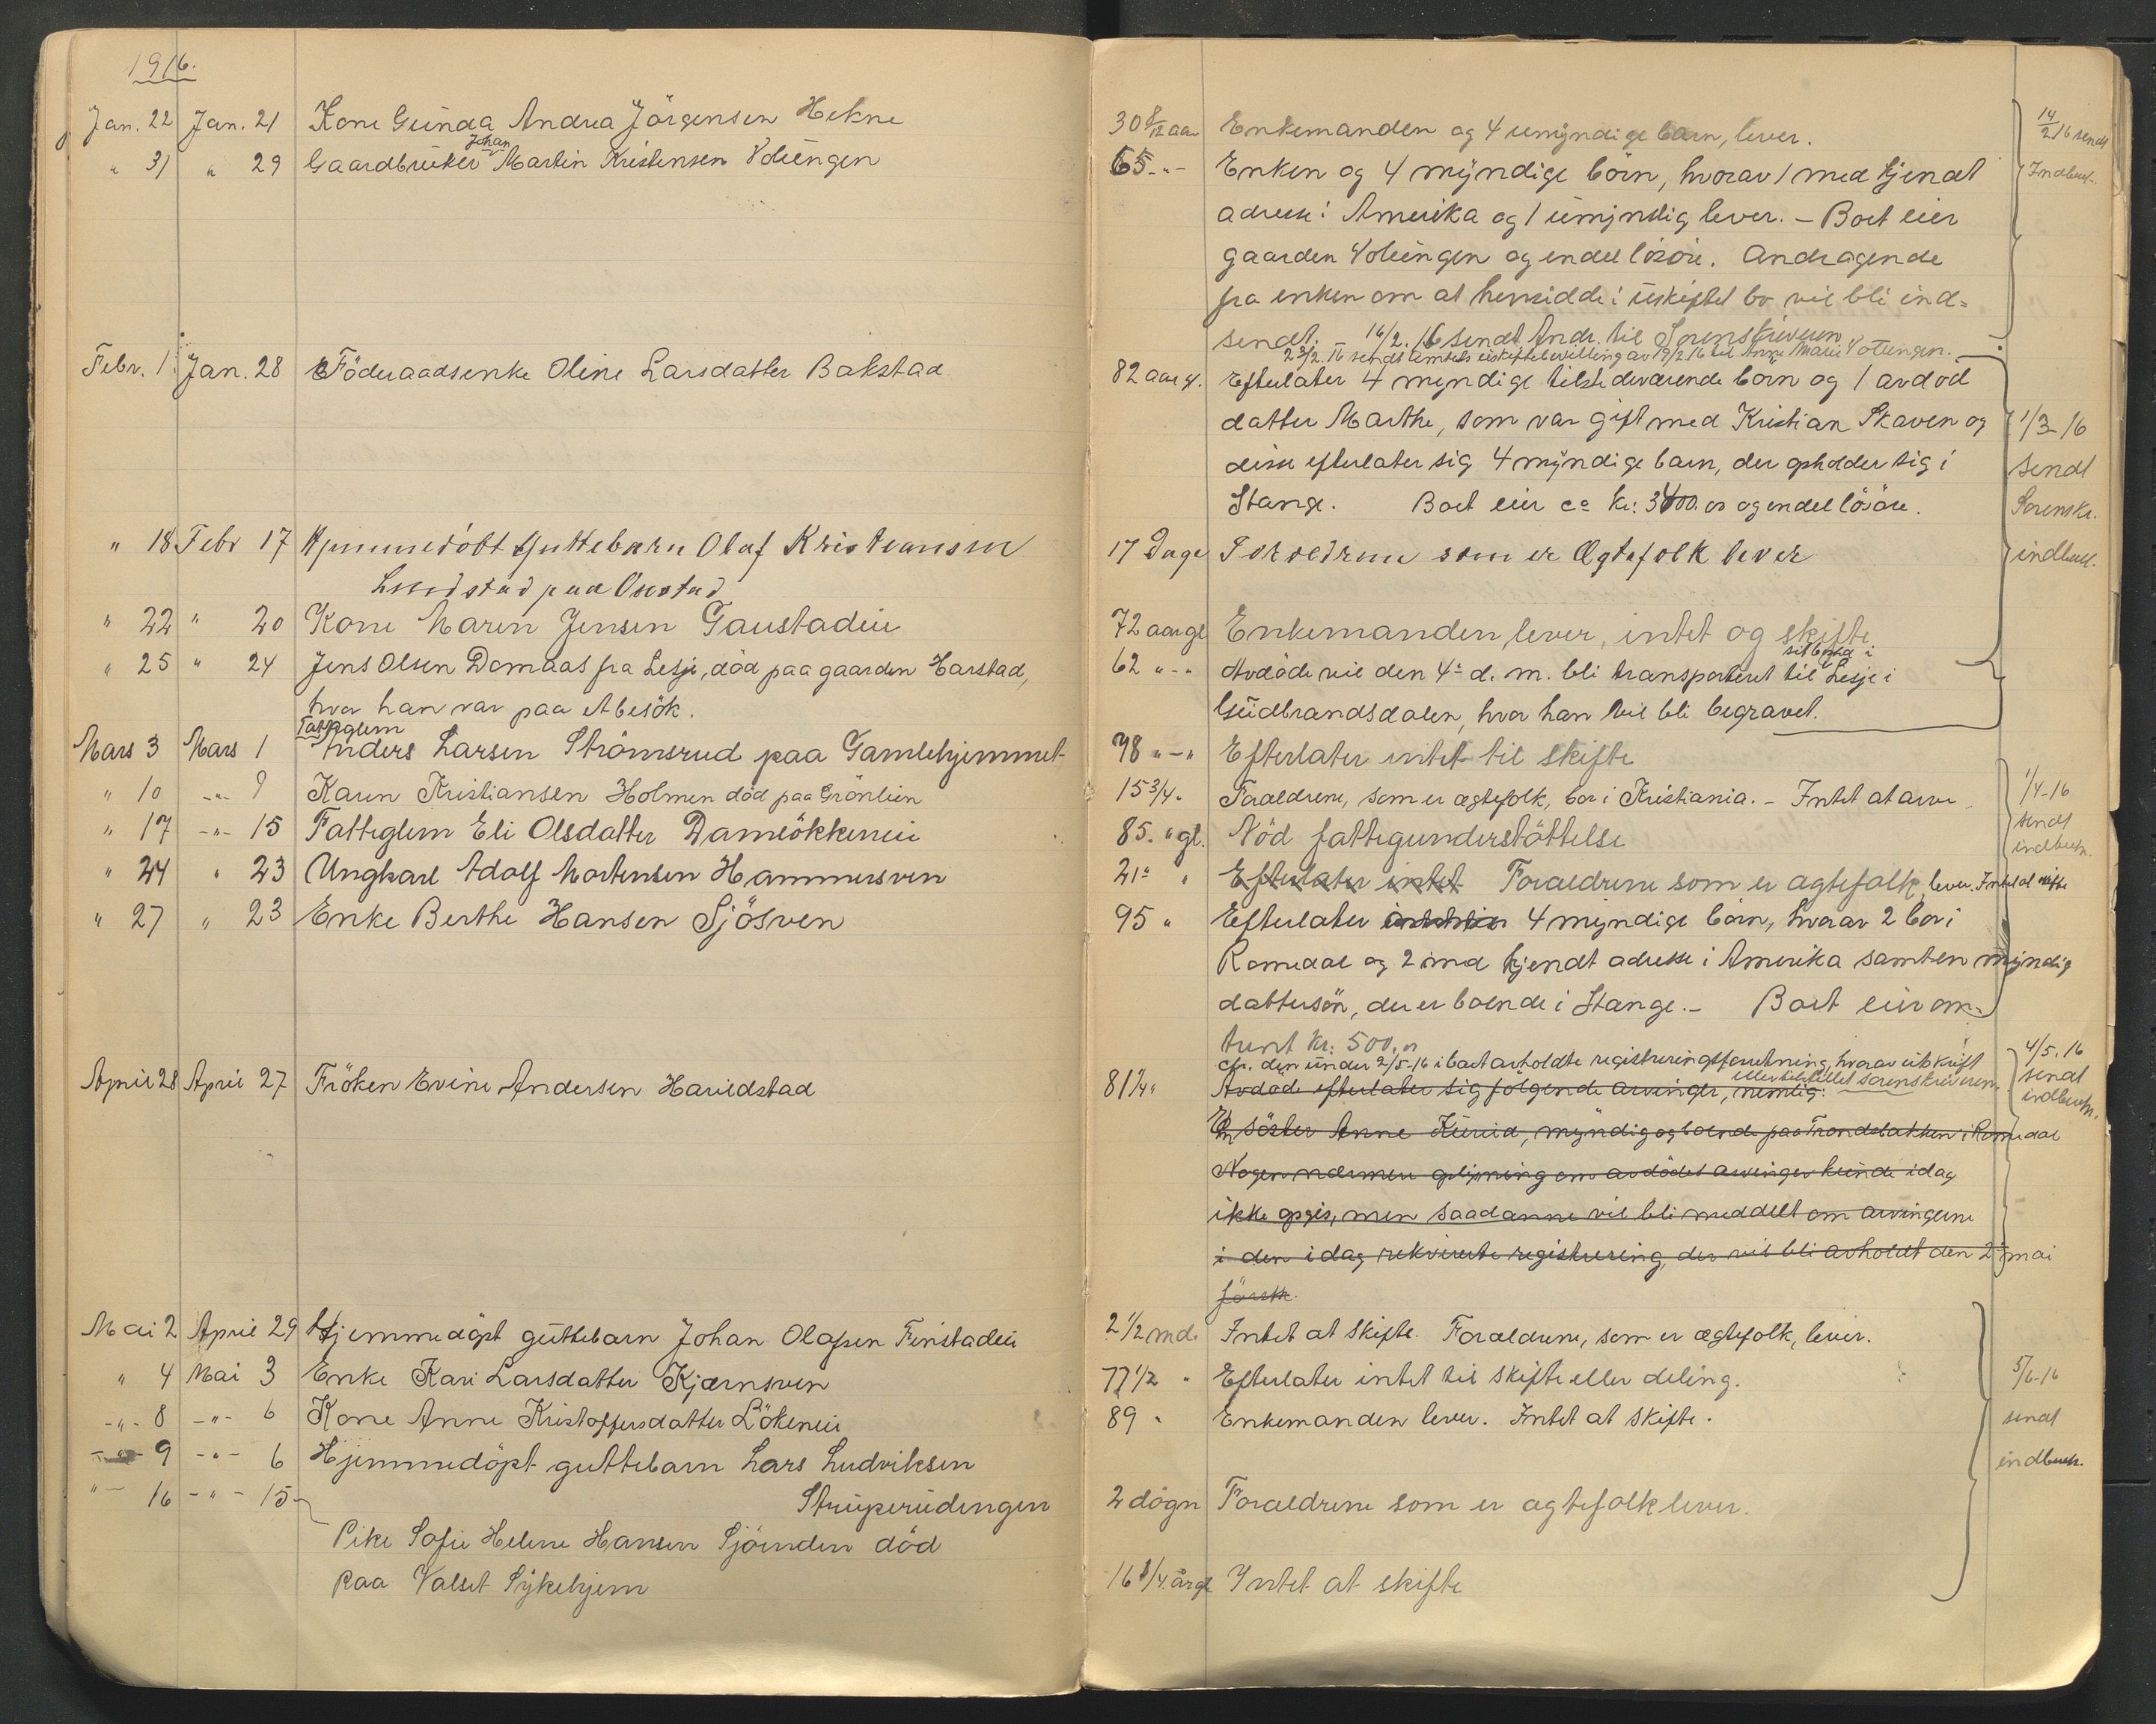 1916.
Jan. 22 Jan. 21 Kone Gunda Andrea Jörgensen Hekne
" 31 " 29 Gaardbruker Johan Martin Kristensen
Febr. 1. Jan. 28 Föderaadsenke Oline Larsdatter Bakstad
" 18 Febr 17 Hjemmedöbt Guttebarn Olaf Kristiansen
paa
" 22 " 20 Kone Maren Jensen Gaustadeie
" 25 " 24 Jens Olsen Domaas fra Lesje, död paa gaarden Harstad,
hvor han var paa et besök.
Fattiglem
Mars 3 Mars 1 Anders Larsen Strömsrud paa Gamlehjemmet
" 10 -"- 9 Karen Kristiansen Holmen död paa Grönlien
" 17 -"- 15 Fattiglem Eli Olsdatter
" 24 " 23 Ungkarl Adolf Mortensen Hammersven
" 27 " 23 Enke Berthe Hansen Sjösven
April 28 April 27 Fröken Evine Andersen Harildstad
Mai 2 April 29 Hjemmedöpt guttebarn Johan Olafsen Finstadeie
" 4 Mai 3 Enke Kari Larsdatter Kjærnsven
-"- 8 -"- 6 Kone Anne Kristoffersdatter Lökeneie
-"- 9 -"- 6 Hjemmedöpt guttebarn Lars Ludviksen
Struperudengen
"- 16 -"- 15-
Pike Sofie Helene Hansen Sjöenden död
paa Valset Sykehjem
30 8/12 aar Enkemanden og 4 umyndige barn, lever.
14/2 16 sendt
65 -"- Enken og 4 myndige börn, hvorav 1 med kjendt
Indberet.
adresse i Amerika og 1 umyndig lever. – Boet eier
gaarden og endel lösöre. Andragende
fra enken om at hensidde i uskiftet bo vil bli ind-
sendt. 16/2. 16 sendt Andr. til Sorenskriveren
23/2. 16 sendt amtets uskiftebevilling av 19/2 16 til Anne Marie
82 aar gl. Efterlater 4 myndige tilstedeværende börn og 1 avdöd
datter Marthe, som var gift med Kristian Skaven og
1/3-16
disse efterlater sig 4 myndige barn, der opholder sig i
sendt
Stange. Boet eier ca kr: 3400.00 og endel lösöre.
Sorenskr.
17 Dage Foreldrene som er Ægtefolk lever
indberet.
72 aar gl Enkemanden lever, intet og skifte
62 "-" Avdöde vil den 4de d. m. bli transporteret til sit hjem i Lesje i
Gudbrandsdalen, hvor han vil bli begravet.
78 "-" Efterlater intet til skifte
15 3/4 " Foraeldrene, som er ægtefolk, bor i Kristiania. – Intet at arve
1/4-16
sendt
indberetn.
85. " gl. Nöd fattigunderstöttelse
21 " Efterlater intet Foraeldrene som er ægtefolk, lever. Intet at skifte
95 " Efterlater 4 myndige börn, hvorav 2 bor i
Romedal og 2 med kjendt adresse i Amerika samt en myndig
dattersön, der er boende i Stange. – Boet eier om-
trent kr: 500.00
cfr. den under 2/5-16 i boet avholdte registreringsforretning, hvorav utskrift
er tilstillet sorenskriveren.
4/5. 16
sendt
indberetn.
81 1/4 " Avdöde efterlater sig fölgende arvinger, nemlig:
En söster Anne Kurud, myndig og boende paa Trondsbakken i Romedal
Nogen nærmere oplysning om avdödes arvinger kunde idag
ikke opgis, men saadanne vil bli meddelt om arvingerne
i den idag rekvirerte registrering, der vil bli avholdt den 2. mai
förstk.
2 1/2 md. Intet at skifte. Foraeldrene, som er ægtefolk, lever.
77 1/2 " Efterlater intet til skifte eller deling.
5/6-16
89 " Enkemanden lever. Intet at skifte.
sendt
indberetn.
2 dögn Foraeldrene som er ægtefolk lever.
16 3/4 år gl Intet at skifte